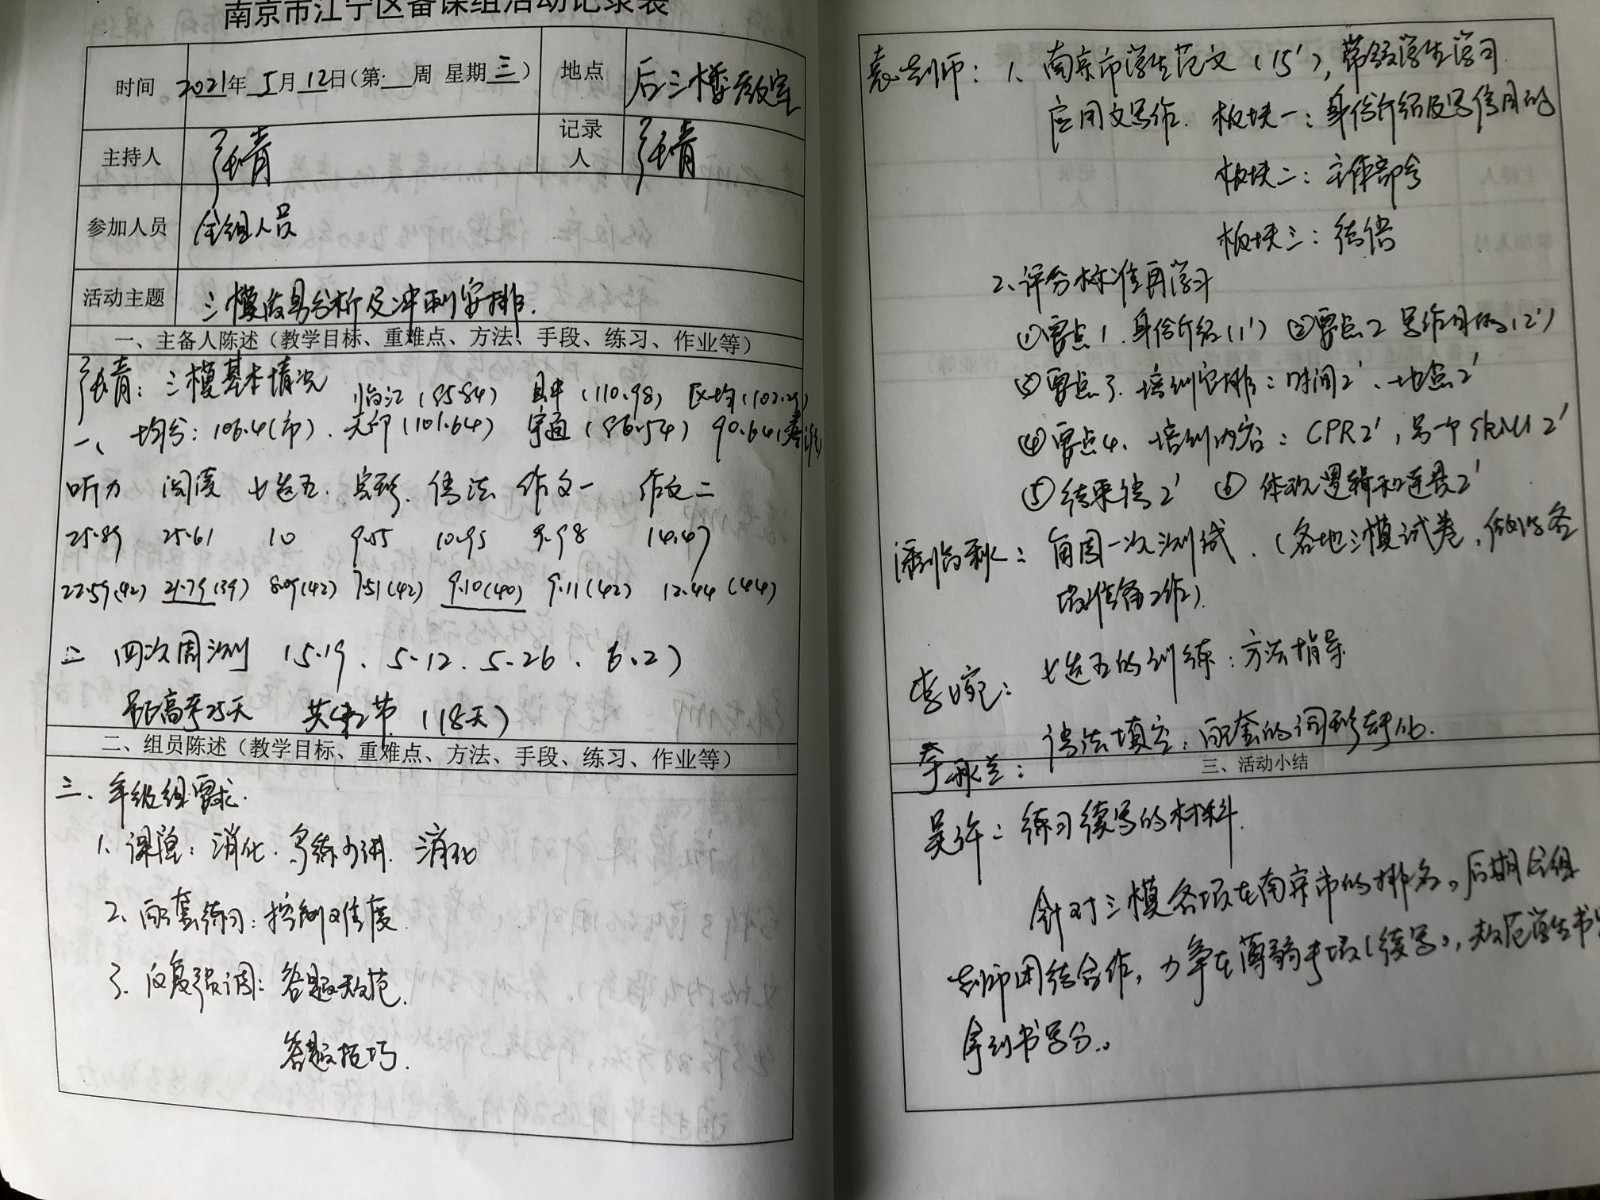 南京市江宁区备课组活动记录表
时间 2021年5月12日(第 周 星期三) 地点 后三楼教室
主持人 张青 记录人 张青
参加人员 全组人员
活动主题 三模成绩分析及冲刺安排.
一、主备人陈述（教学目标、重难点、方法、手段、练习、作业等）
张青: 三模基本情况 临江(95.84) 县中(110.98) 区均
一、均分: 106.4(市). (101.64) 宇通(86.54) 90.64
听力 阅读 七选五. 完形. 语法 作文一 作文二
25.89 25.61 10 9.55 10.95 9.98 14.47
22.59(42) 21.79(39) 8.09(42) 7.51(42) 9.10(40) 9.11(42) 12.44(44)
二 四次周测 (5.19、5.12、5.26、6.2)
距高考25天 共 节 (18天)
二、组员陈述（教学目标、重难点、方法、手段、练习、作业等）
三、年级组要求.
1. 课堂: 消化. 多练少讲. 消化
2. 配套练习: 控制难度
3. 反复强调: 答题规范.
答题技巧.
袁老师: 1、南京市学生范文(15'), 带领学生学习
应用文写作. 板块一: 身份介绍及写信目的
板块二: 主体部分
板块三: 结语
2、评分标准再学习
①要点1. 身份介绍(1') ②要点2 写作目的(2')
③要点3. 培训安排: 时间2'、地点2'
④要点4、培训内容: CPR2', 另一个skill 2'
⑤结束语2' ⑥体现逻辑和连贯2'
每周一次测试. (各地三模试卷, 做好各
项准备工作).
李婉: 七选五的训练: 方法指导
李永兰: 语法填空: 配套的词形转化.
三、活动小结
吴许: 练习续写的材料.
针对三模各项在南京市的排名, 后期全组
老师团结合作, 力争在薄弱专项(续写), 规范学生书写
拿到书写分。